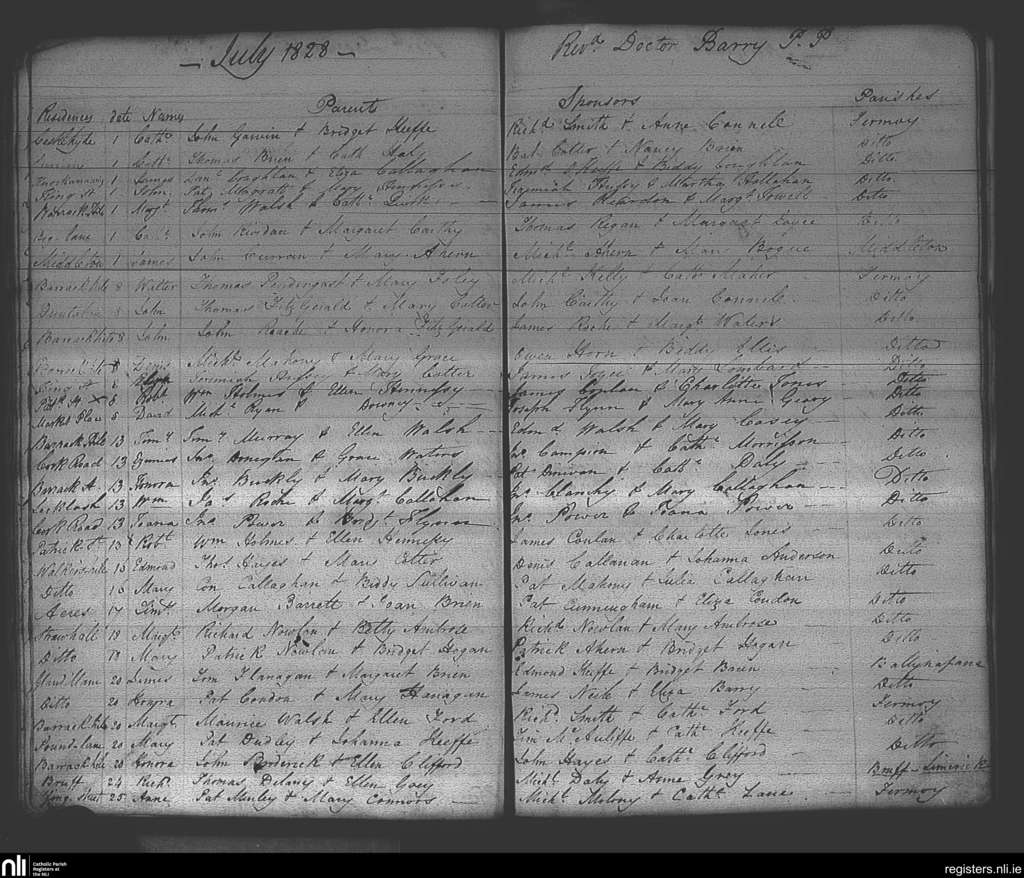 July 1828
Revd. Doctor Barry P. P
Residences date Names Parents Sponsors Parishes
Castlehyde 1 Cath. John Gavin & Bridget Keeffe Richd. Smith & Anne Connell Fermoy
1 Cath. Thomas Brien & Cath Bat Cotter & Nancy Brien Ditto
1 James Coughlan & Eliza Callaghan Keeffe & Biddy Coughlan Ditto
King St 1 John Pat Jeremiah & Martha Hallahan Ditto
Barrack Hill 1 Margt. Thoms. Walsh & Cathe. James Reardon & Margt. Ditto
lane 1 Cath. John Riordan & Margaret Carthy Thomas Regan & Margaret Joyce Ditto
Middleton 1 James John Curran & Mary Ahern Michl. Ahern & Mary Bogue Middleton
Barrack hile 8 Walter Thomas Pendergast & Mary Foley Michl. Kelly & Cath Maher Fermoy
8 John Thomas FitzGerald & Mary Cotter John Carthy & Joan Connell Ditto
Barrack hile 8 John John Roache & Honora FitzGerald James Roche & Margt. Waters Ditto
8 Denis Michl. Mahony & Mary Grace Owen Horn & Biddy Ellis Ditto
King St 8 Jeremiah & Mary Cotter James Joyce & Mary Lombard Ditto
St × 8 Robt. Wm Holmes & Ellen Hennessy James Conlan & Charlotte Jones Ditto
Market Place 8 David Michl. Ryan & Downey Joseph Flynn & Mary Anne Geary Ditto
Barrack Hile 13 Timy. Timy. Murray & Ellen Walsh Edmd. Walsh & Mary Casey Ditto
Cork Road 13 Jno. Donegan & Grace Waters Jno. Campion & Cathe. Morrisson Ditto
Barrack St. 13 Honora Jno. Buckly & Mary Buckly Pat Donivan & Cathe. Daly Ditto
13 Wm Jas. Roche & Margt. Callahan Jno. Clanchy & Mary Callaghan Ditto
Cork Road 13 Joana Jno. Power & Bridgt. Flynn Jno. Power & Joana Power Ditto
Patrick St. 13 Robt. Wm Holmes & Ellen Hennessy James Conlan & Charlotte Jones Ditto
Walkersville 13 Edmond Thos. Hayes & Mary Cotter Denis Callanan & Johanna Anderson Ditto
Ditto 16 Mary Con Callaghan & Biddy Sullivan Pat Mahony & Julia Callaghan Ditto
Acres 17 Timy. Morgan Barrett & Joan Brien Pat Cunningham & Eliza Condon Ditto
Strawhall 19 Margt. Richard Nowlan & Betty Ambrose Richd. Nowlan & Mary Ambrose Ditto
Ditto 19 Mary Patrick Nowlan & Bridget Hogan Patrick Ahern & Bridget Hogan Ditto
20 James Tom Flanagan & Margaret Brien Edmond Keeffe & Bridget Brien
Ditto 20 Honora Pat Condon & Mary Hanagan James Nick & Eliza Barry Ditto
Barrack hile 20 Margt. Maurice Walsh & Ellen Ford Richd. Smith & Cathe. Ford Fermoy
Pound lane 20 Mary Pat Dudley & Johanna Keeffe Tim McAuliffe & Cathe. Keeffe Ditto
Barrack hile 20 Honora John Roderick & Ellen Clifford John Hayes & Cathe. Clifford Ditto
Bruff 24 Richd. Thomas Delany & Ellen Goey Michl. Daly & Anne Grey Bruff - Limerick
King Street 25 Anne Pat Manley & Mary Connors Michl. Molony & Cathe. Lane Fermoy
nli Catholic Parish Registers at the NLI
registers.nli.ie